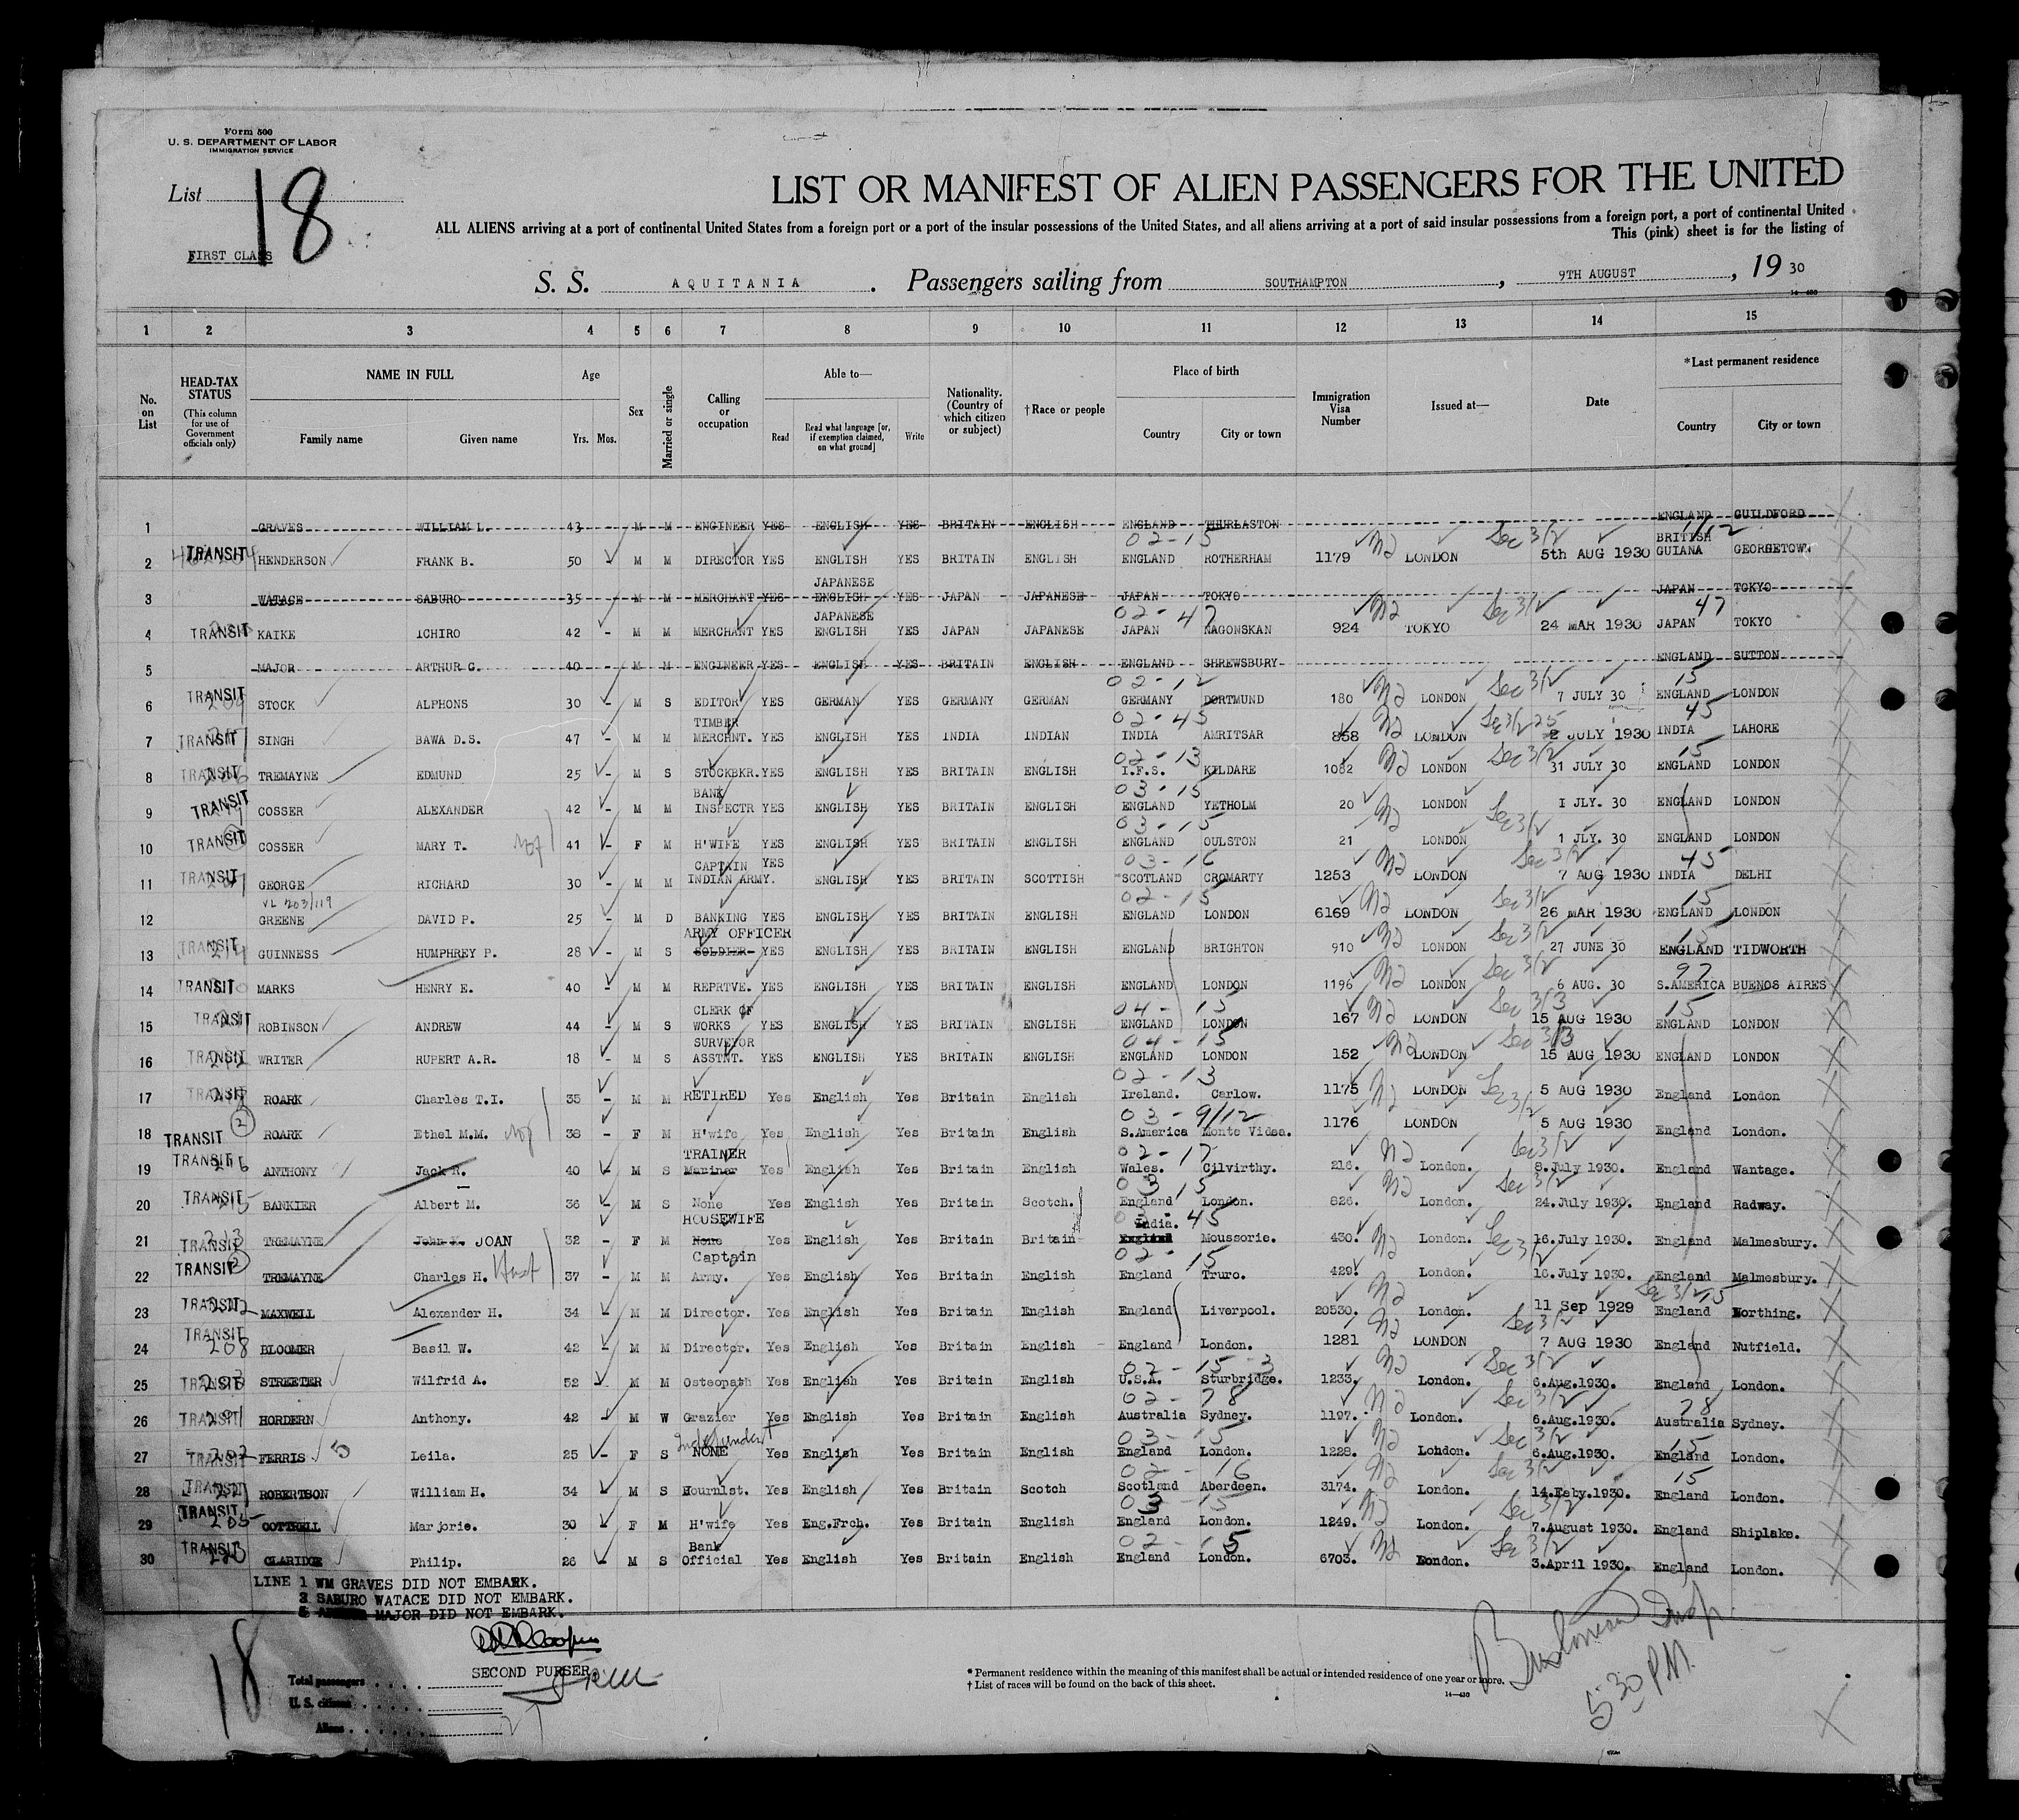 Form 500
U. S. DEPARTMENT OF LABOR
IMMIGRATION SERVICE
List 18
LIST OR MANIFEST OF ALIEN PASSENGERS FOR THE UNITED
ALL ALIENS arriving at a port of continental United States from a foreign port or a port of the insular possessions of the United States, and all aliens arriving at a port of said insular possessions from a foreign port, a port of continental United
This (pink) sheet is for the listing of
FIRST CLASS
S. S. AQUITANIA. Passengers sailing from SOUTHAMPTON, 9TH AUGUST, 19 30
1 2 3 4 5 6 7 8 9 10 11 12 13 14 15
No. on List
HEAD-TAX STATUS (This column for use of Government officials only)
NAME IN FULL Family name Given name
Age Yrs. Mos.
Sex
Married or single
Calling or occupation
Able to— Read Read what language [or, if exemption claimed, on what ground] Write
Nationality. (Country of which citizen or subject)
†Race or people
Place of birth Country City or town
Immigration Visa Number
Issued at—
Date
*Last permanent residence Country City or town
1 GRAVES WILLIAM L. 43 M M ENGINEER YES ENGLISH YES BRITAIN ENGLISH ENGLAND THURLASTON ENGLAND GUILDFORD
2 TRANSIT HENDERSON FRANK B. 50 - M M DIRECTOR YES ENGLISH YES BRITAIN ENGLISH 02-15 ENGLAND ROTHERHAM 1179 LONDON Sec 3/2 5th AUG 1930 BRITISH GUIANA GEORGETOWN
3 WATACE SABURO 35 M M MERCHANT YES JAPANESE ENGLISH YES JAPAN JAPANESE JAPAN TOKYO JAPAN TOKYO
4 TRANSIT KAIKE ICHIRO 42 - M M MERCHANT YES JAPANESE ENGLISH YES JAPAN JAPANESE 02-47 JAPAN NAGONSKAN 924 TOKYO Sec 3/2 24 MAR 1930 47 JAPAN TOKYO
5 MAJOR ARTHUR C. 40 M M ENGINEER YES ENGLISH YES BRITAIN ENGLISH ENGLAND SHREWSBURY ENGLAND SUTTON
6 TRANSIT STOCK ALPHONS 30 - M S EDITOR YES GERMAN YES GERMANY GERMAN 02-12 GERMANY DORTMUND 180 LONDON Sec 3/2 7 JULY 30 15 ENGLAND LONDON
7 TRANSIT SINGH BAWA D.S. 47 - M M TIMBER MERCHNT. YES ENGLISH YES INDIA INDIAN 02-45 INDIA AMRITSAR 858 LONDON Sec 3/2 25 JULY 1930 45 INDIA LAHORE
8 TRANSIT TREMAYNE EDMUND 25 - M S STOCKBKR. YES ENGLISH YES BRITAIN ENGLISH 02-13 I.F.S. KILDARE 1082 LONDON Sec 3/2 31 JULY 30 15 ENGLAND LONDON
9 TRANSIT COSSER ALEXANDER 42 - M M BANK INSPECTR YES ENGLISH YES BRITAIN ENGLISH 03-15 ENGLAND YETHOLM 20 LONDON I JLY. 30 ENGLAND LONDON
10 TRANSIT COSSER MARY T. 41 - F M H'WIFE YES ENGLISH YES BRITAIN ENGLISH 03-15 ENGLAND OULSTON 21 LONDON Sec 3/2 1 JLY. 30 ENGLAND LONDON
11 TRANSIT GEORGE RICHARD 30 - M M CAPTAIN INDIAN ARMY. YES ENGLISH YES BRITAIN SCOTTISH 03-16 SCOTLAND CROMARTY 1253 LONDON Sec 3/2 7 AUG 1930 45 INDIA DELHI
12 VL 203/119 GREENE DAVID P. 25 - M D BANKING YES ENGLISH YES BRITAIN ENGLISH 02-15 ENGLAND LONDON 6169 LONDON Sec 3/2 26 MAR 1930 15 ENGLAND LONDON
13 TRANSIT GUINNESS HUMPHREY P. 28 - M S ARMY OFFICER SOLDIER YES ENGLISH YES BRITAIN ENGLISH ENGLAND BRIGHTON 910 LONDON Sec 3/2 27 JUNE 30 15 ENGLAND TIDWORTH
14 TRANSIT MARKS HENRY E. 40 - M M REPRTVE. YES ENGLISH YES BRITAIN ENGLISH ENGLAND LONDON 1196 LONDON Sec 3/2 6 AUG. 30 97 S.AMERICA BUENOS AIRES
15 TRANSIT ROBINSON ANDREW 44 - M S CLERK OF WORKS YES ENGLISH YES BRITAIN ENGLISH 04-15 ENGLAND LONDON 167 LONDON Sec 3/3 15 AUG 1930 15 ENGLAND LONDON
16 TRANSIT WRITER RUPERT A.R. 18 - M S SURVEYOR ASSTNT. YES ENGLISH YES BRITAIN ENGLISH 04-15 ENGLAND LONDON 152 LONDON Sec 3/3 15 AUG 1930 ENGLAND LONDON
17 TRANSIT ROARK Charles T.I. 35 - M M RETIRED Yes English Yes Britain English 02-13 Ireland. Carlow. 1175 LONDON Sec 3/2 5 AUG 1930 England London
18 TRANSIT 2 ROARK Ethel M.M. 38 - F M H'wife Yes English Yes Britain English 03-9/12 S.America Monte Videa. 1176 LONDON 5 AUG 1930 England London.
19 TRANSIT ANTHONY Jack R. 40 - M S TRAINER Mariner Yes English Yes Britain English 02-17 Wales. Cilvirthy. 216. London. Sec 3/2 8.July 1930. England Wantage.
20 TRANSIT BANKIER Albert M. 36 - M S None Yes English Yes Britain Scotch. 03 15 England London. 826. London. Sec 3/2 24.July 1930. England Radway.
21 TRANSIT TREMAYNE JOAN 32 - F M HOUSEWIFE None Yes English Yes Britain Britain 03-45 India. England Moussorie. 430. London. Sec 3/2 16.July 1930. England Malmesbury.
22 TRANSIT 2 TREMAYNE Charles H. 37 - M M Captain Army. Yes English Yes Britain English 02-15 England Truro. 429. London. 16.July 1930. England Malmesbury.
23 TRANSIT MAXWELL Alexander H. 34 - M M Director. Yes English Yes Britain English England Liverpool. 20530. London. 11 Sep 1929 Sec 3/2 15 England Worthing.
24 TRANSIT 208 BLOOMER Basil W. 42 - M M Director. Yes English Yes Britain English England London. 1281 LONDON Sec 3/2 7 AUG 1930 England Nutfield.
25 TRANSIT STREETER Wilfrid A. 52 - M M Osteopath Yes English Yes Britain English 02-15-3 U.S.A. Sturbridge. 1233. London. Sec 3/2 6.Aug.1930. England London.
26 TRANSIT HORDERN Anthony. 42 - M W Grazier Yes English Yes Britain English 02-78 Australia Sydney. 1197. London. Sec 3/2 6.Aug.1930. 78 Australia Sydney.
27 TRANSIT FERRIS 5 Leila. 25 - F S Independent NONE Yes English Yes Britain English 03-15 England London. 1228. London. Sec 3/2 6.Aug.1930. 15 England London.
28 TRANSIT ROBERTSON William H. 34 - M S Journlst. Yes English Yes Britain Scotch 02-16 Scotland Aberdeen. 3174. London. Sec 3/2 14.Feby.1930. 15 England London.
29 TRANSIT 205 COTTRELL Marjorie. 30 - F M H'wife Yes Eng.Frch. Yes Britain English 03-15 England London. 1249. London. Sec 3/2 7.August 1930. England Shiplake.
30 TRANSIT CLARIDGE Philip. 26 - M S Bank Official Yes English Yes Britain English 02-15 England London. 6703. London. Sec 3/2 3.April 1930. England London.
LINE 1 WM GRAVES DID NOT EMBARK.
3 SABURO WATACE DID NOT EMBARK.
5 MAJOR DID NOT EMBARK.
SECOND PURSER.
18
Total passengers
U. S. citizens
Aliens 27
* Permanent residence within the meaning of this manifest shall be actual or intended residence of one year or more.
† List of races will be found on the back of this sheet.
14—430
5:30 PM.